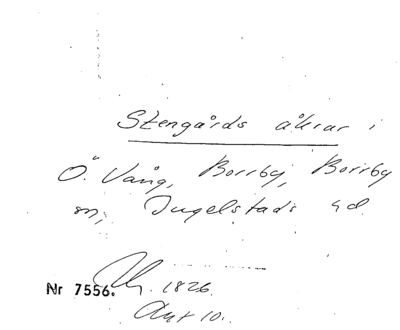 Stengårds åkrar i
Ö. Vång, Borrby, Borrby
sn, Ingelstads hd.
Nr 7556. 1826.
Akt 10.